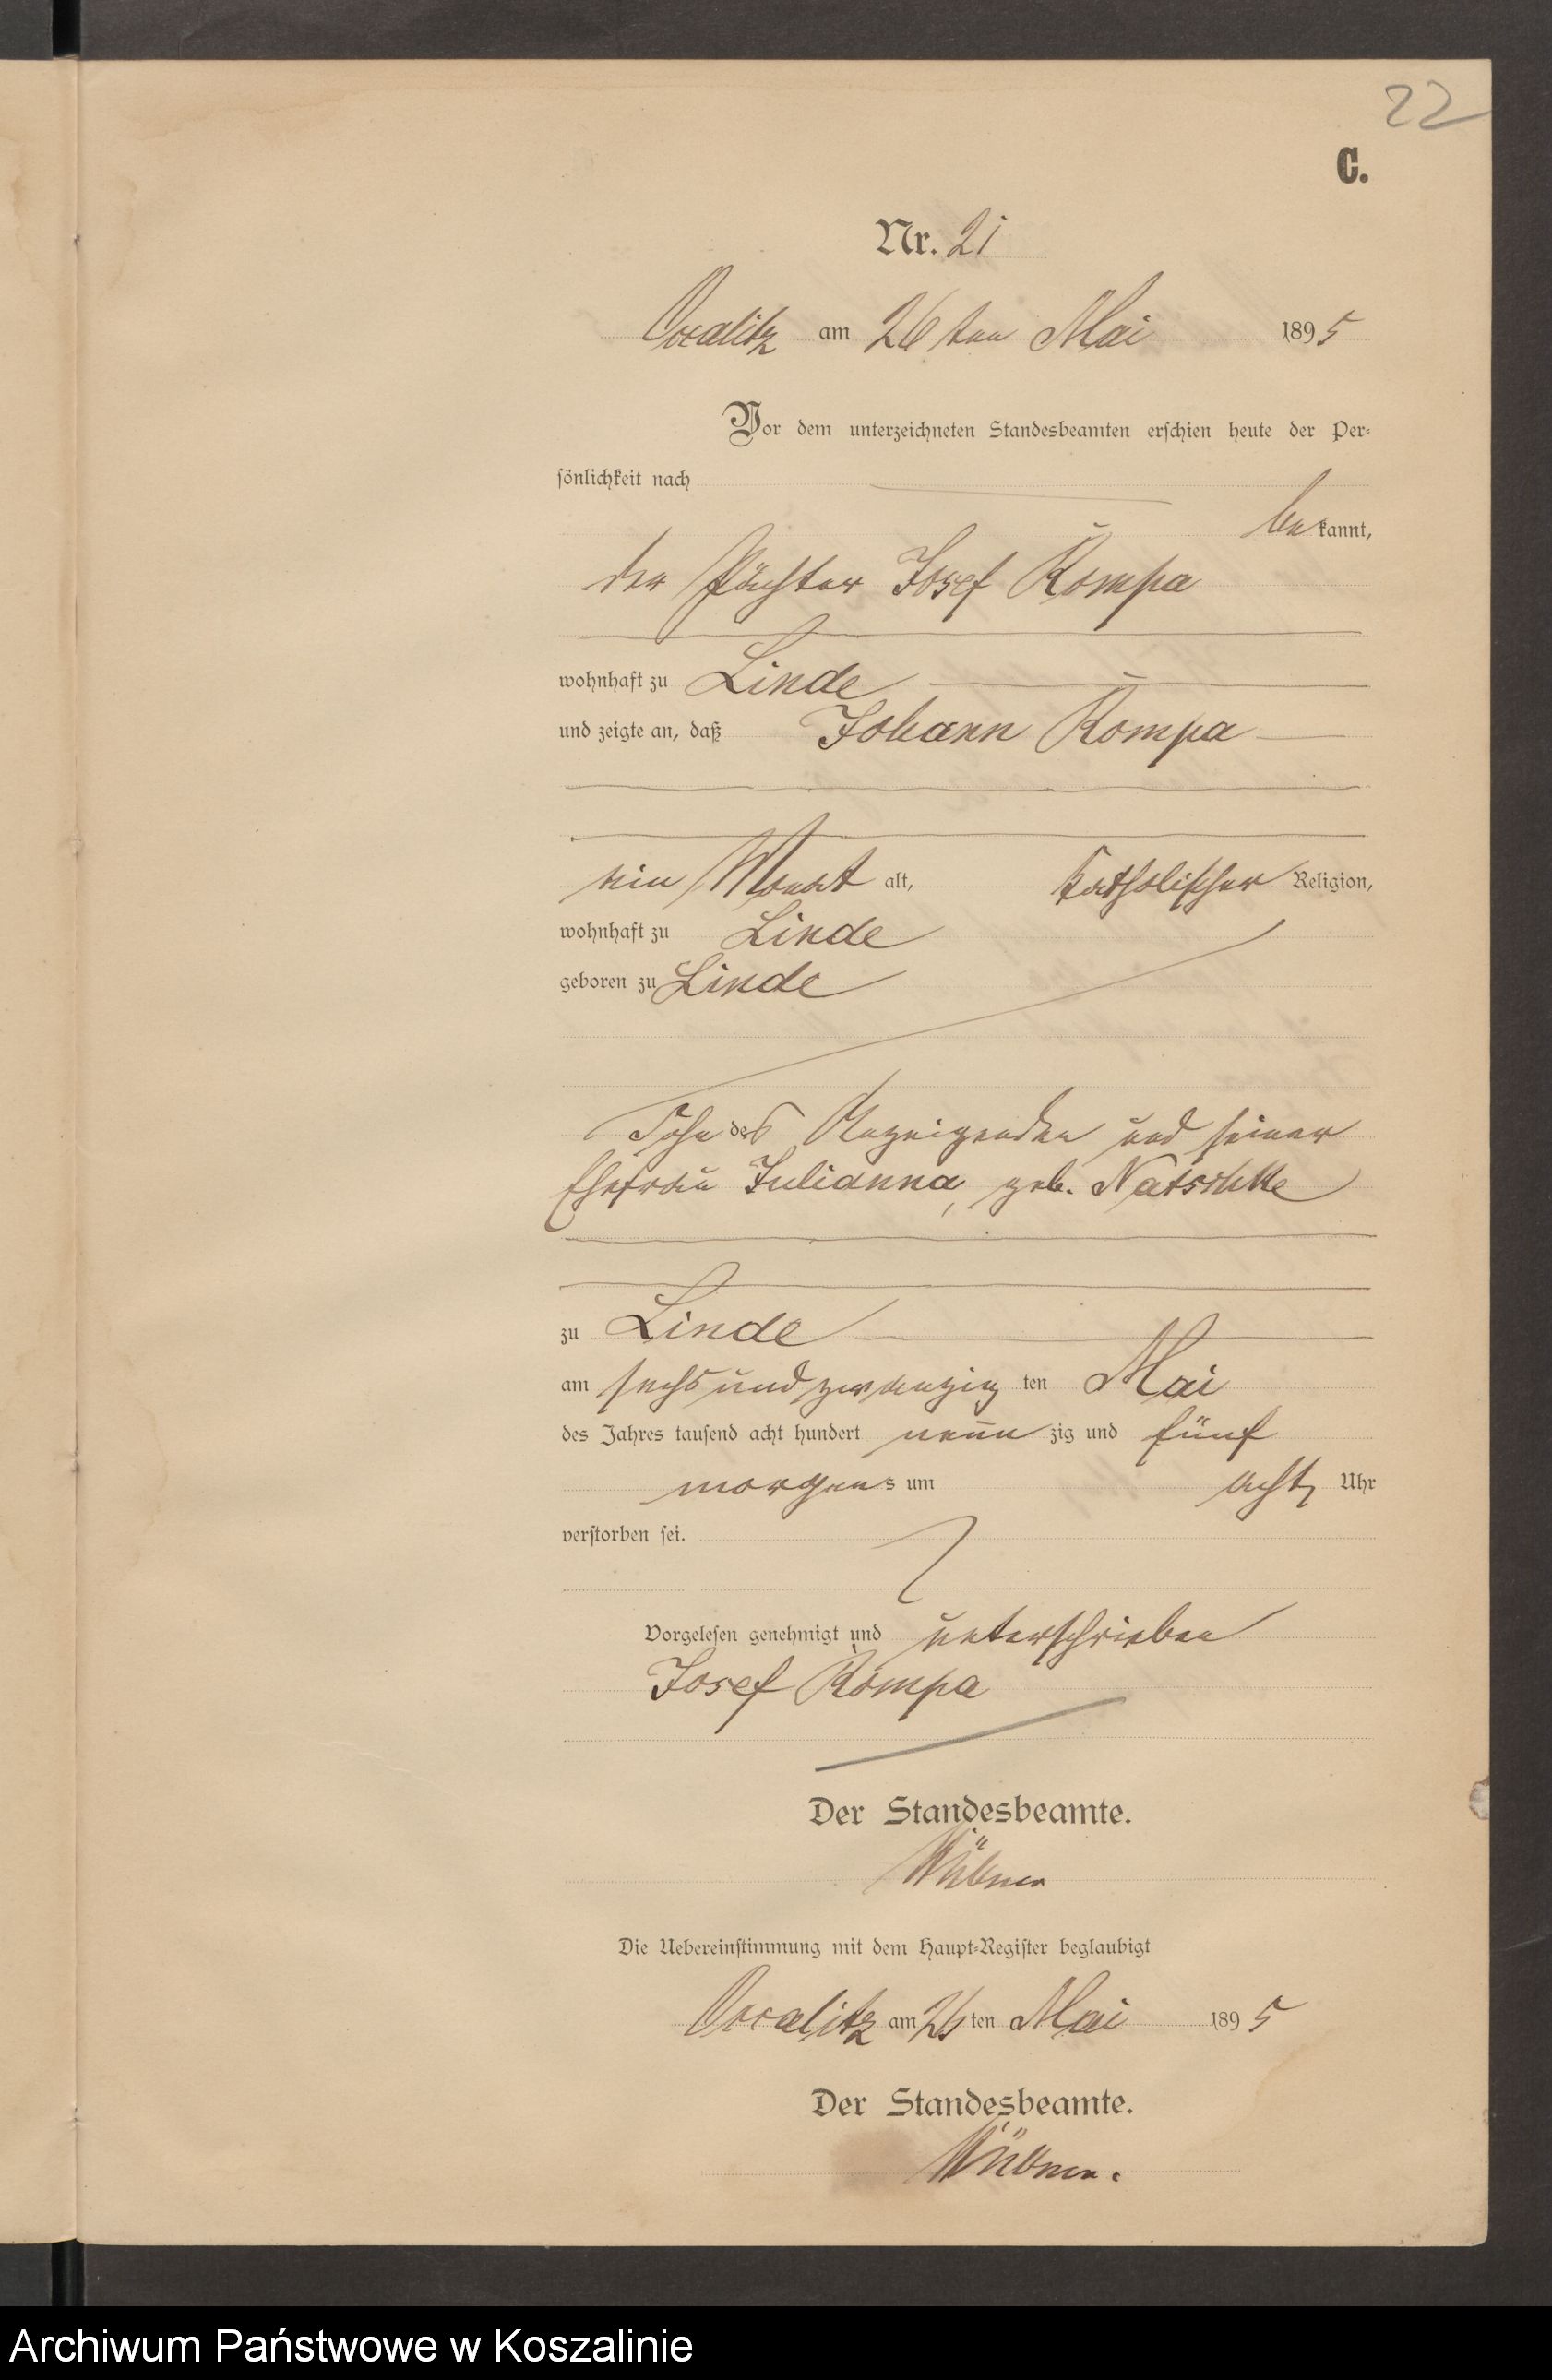 22
C.
Nr. 21
am 26ten Mai 1895
Vor dem unterzeichneten Standesbeamten erschien heute der Per-
sönlichkeit nach
bekannt,
der Pächter Josef Kompa
wohnhaft zu Linde
und zeigte an, daß Johann Kompa
ein Monat alt, katholischer Religion,
wohnhaft zu Linde
geboren zu Linde
Sohn des Anzeigenden und seiner
Ehefrau Julianna, geb.
zu Linde
am sechsundzwanzig ten Mai
des Jahres tausend acht hundert neun zig und fünf
morgens um acht Uhr
verstorben sei.
Vorgelesen genehmigt und unterschrieben
Josef Kompa
Der Standesbeamte.
Die Uebereinstimmung mit dem Haupt-Register beglaubigt
am 26 ten Mai 1895
Der Standesbeamte.
Archiwum Państwowe w Koszalinie